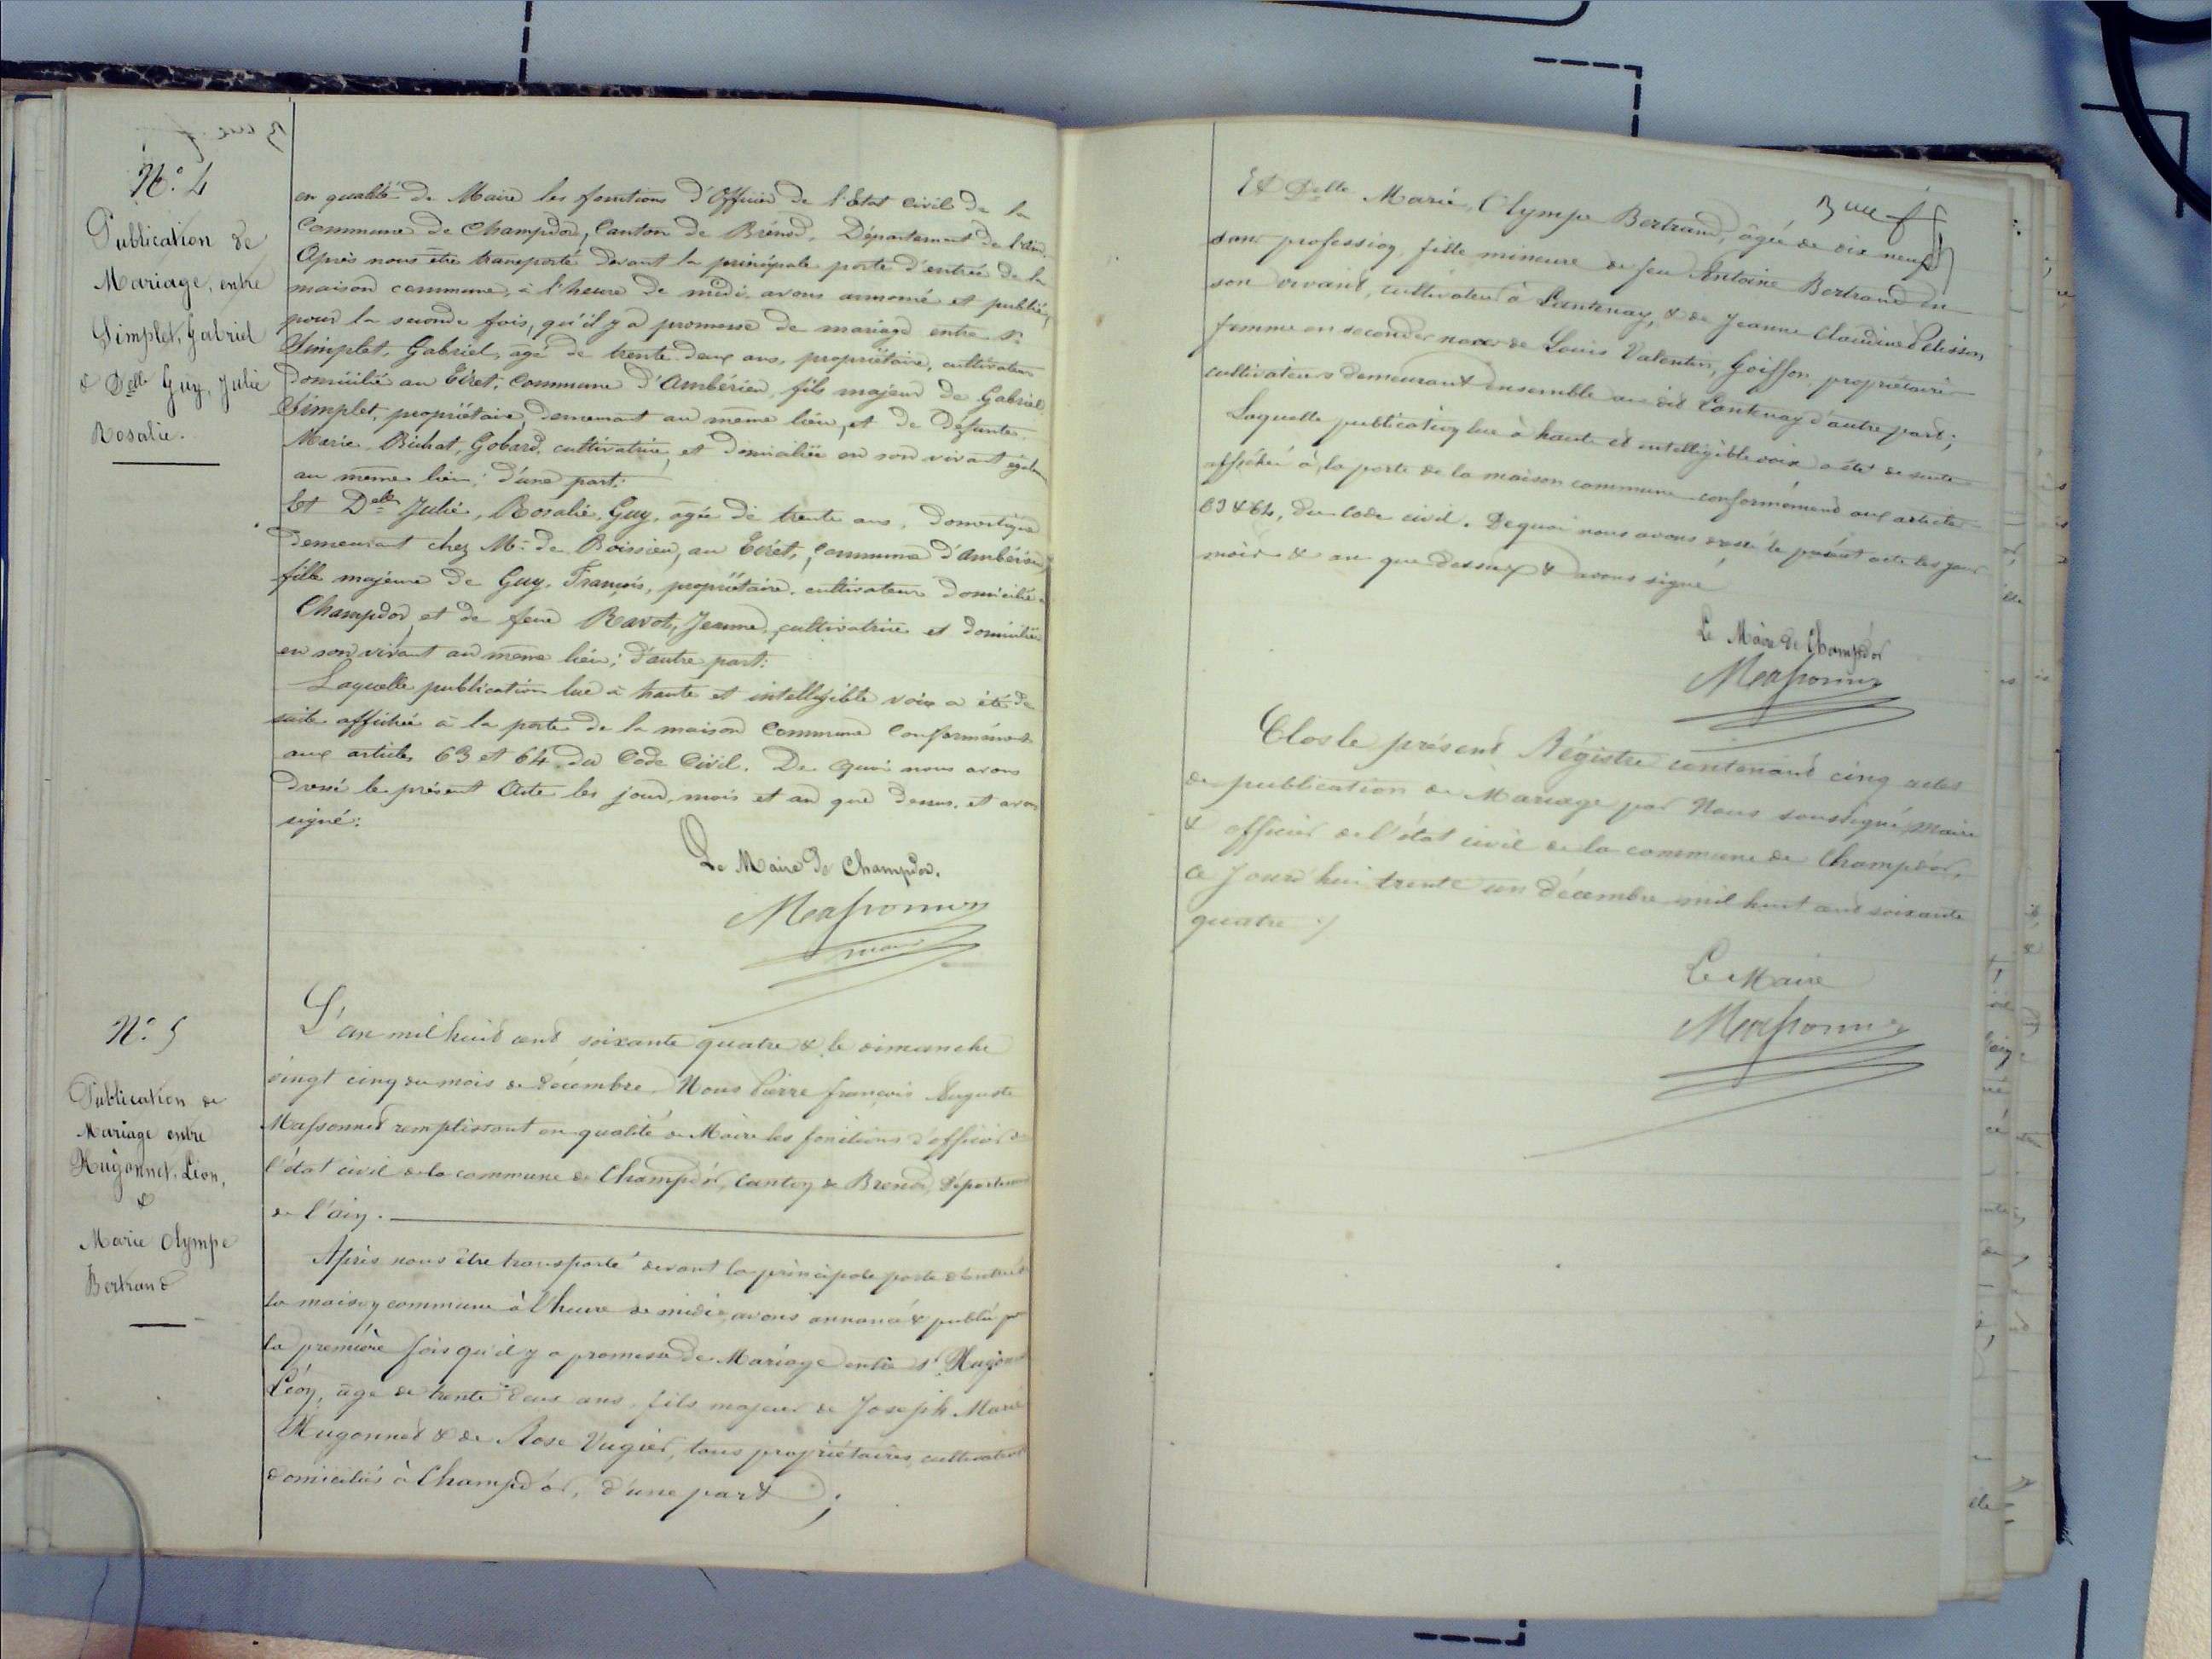 N.º 4
Publication de
Mariage, entre
Simplet, Gabriel
& Delle Guy, Julie
Rosalie.
en qualité de Maire les fonctions d'Officier de l'Etat Civil de la
Commune de Champdor, Canton de Brénod, Département de l'Ain.
Après nous être transporté devant la principale porte d'entrée de la
maison commune, à l'heure de midi, avons annoncé et publié,
pour la seconde fois, qu'il y a promesse de mariage entre Sr
Simplet, Gabriel, âgé de trente deux ans, propriétaire, cultivateur
domicilié au Tiret, Commune d'Ambérieu, fils majeur de Gabriel
Simplet, propriétaire, demeurant au même lieu, et de Défunte
Marie Bichat, Gobard, cultivatrice, et domiciliée en son vivant
au même lieu; d'une part:
Et Delle Julie, Rosalie, Guy, âgée de trente ans, domestique
demeurant chez Mr de Boissieu, au Tiret, Commune d'Ambérieu,
fille majeure de Guy, François, propriétaire, cultivateur domicilié à
Champdor, et de feue Ravot, Jeanne, cultivatrice et domiciliée
en son vivant au même lieu; d'autre part:
Laquelle publication lue à haute et intelligible voix a été de
suite affichée à la porte de la maison Commune Conformément
aux articles 63 et 64 du Code Civil. De quoi nous avons
dressé le présent Acte les jour, mois et an que dessus, et avons
signé:
Le Maire de Champdor.
Massonnet
maire
N.º 5
Publication de
Mariage entre
Hugonnet, Léon,
&
Marie Olympe
Bertrand
L'an mil huit cent soixante quatre & le dimanche
vingt cinq du mois de décembre. Nous Pierre françois Auguste
Massonnet remplissant en qualité de Maire les fonctions d'officier de
l'état civil de la commune de Champdor, Canton de Brenod, département
de l'ain.
Après nous être transporté devant la principale porte d'entrée de
la maison commune à l'heure de midi, avons annoncé & publié pr
la première fois qu'il y a promesse de Mariage entre sr Hugonnet
Léon, âgé de trente deux ans, fils majeur de Joseph Marie
Hugonnet & de Rose Vugier, tous propriétaires, cultivateurs
domiciliés à Champdor, d'une part;
Et Delle Marie, Olympe Bertrand, âgée de dix neuf
sans profession, fille mineure de feu Antoine Bertrand en
son vivant, cultivateur à Lantenay, & de Jeanne Claudine Pelisson
femme en secondes noces de Louis Valentin, Goiffon, propriétaire
cultivateurs demeurant ensemble au dit Lantenay d'autre part;
Laquelle publication lue à haute et intelligible voix a été de suite
affichée à la porte de la maison commune conformément aux articles
63 & 64, du Code civil. De quoi nous avons dressé le présent acte les jour
mois & an que dessus & avons signé
Le Maire de Champdor
Massonnet
Clos le présent Régistre contenant cinq actes
de publication de Mariage par Nous soussigné, Maire
& officier de l'état civil de la commune de Champdor,
ce jourd'hui trente un décembre mil huit cent soixante
quatre
Le Maire
Massonnet